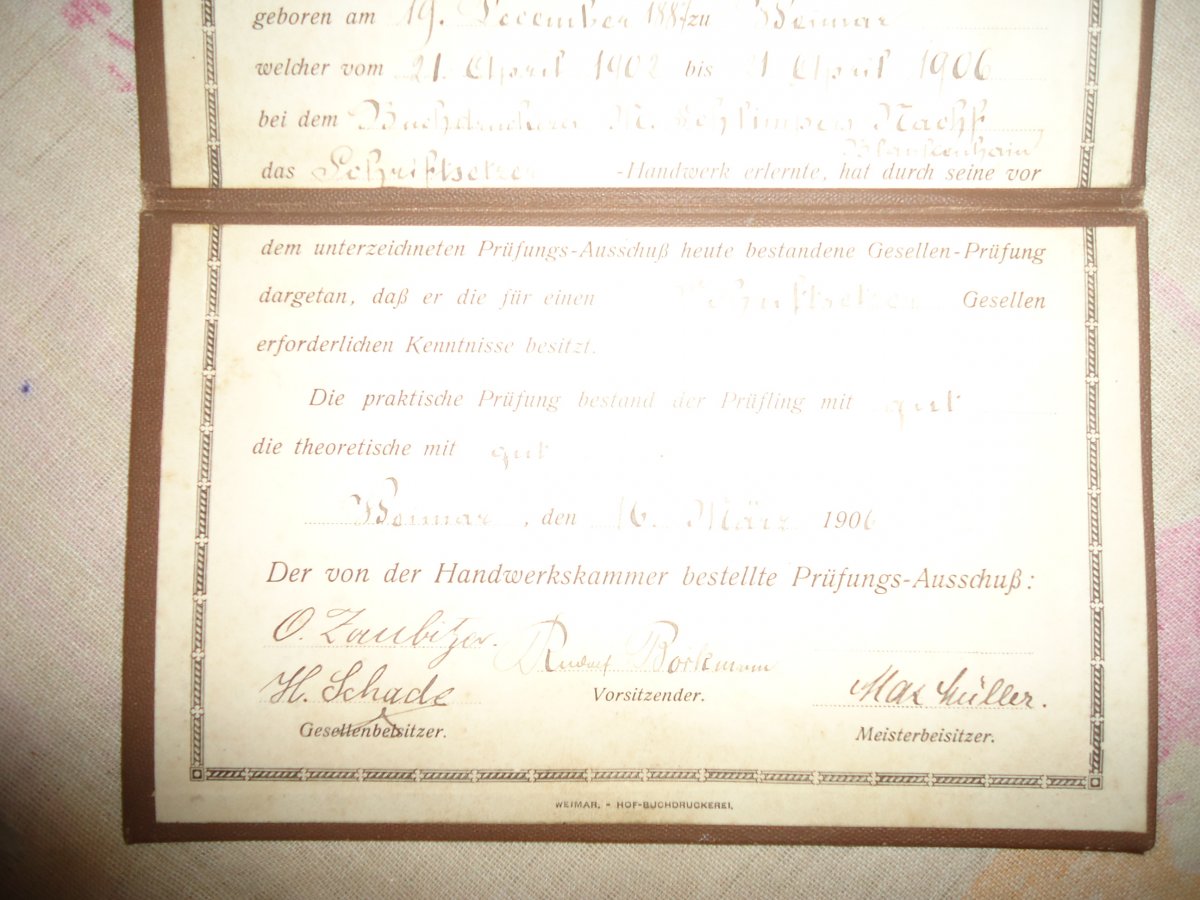 geboren am 19. December 1887 zu Weimar
welcher vom 21. April 1902 bis 21. April 1906
bei dem Buchdruckerei Nachf.
Blankenhain
das Schriftsetzer -Handwerk erlernte, hat durch seine vor
dem unterzeichneten Prüfungs-Ausschuß heute bestandene Gesellen-Prüfung
dargetan, daß er die für einen Schriftsetzer Gesellen
erforderlichen Kenntnisse besitzt.
Die praktische Prüfung bestand der Prüfling mit gut
die theoretische mit gut
Weimar, den 16. März 1906
Der von der Handwerkskammer bestellte Prüfungs-Ausschuß:
O. Zaubitzer.
Rudolf Borkmann
H. Schade
Vorsitzender.
Max Müller.
Gesellenbeisitzer.
Meisterbeisitzer.
WEIMAR. - HOF-BUCHDRUCKEREI.